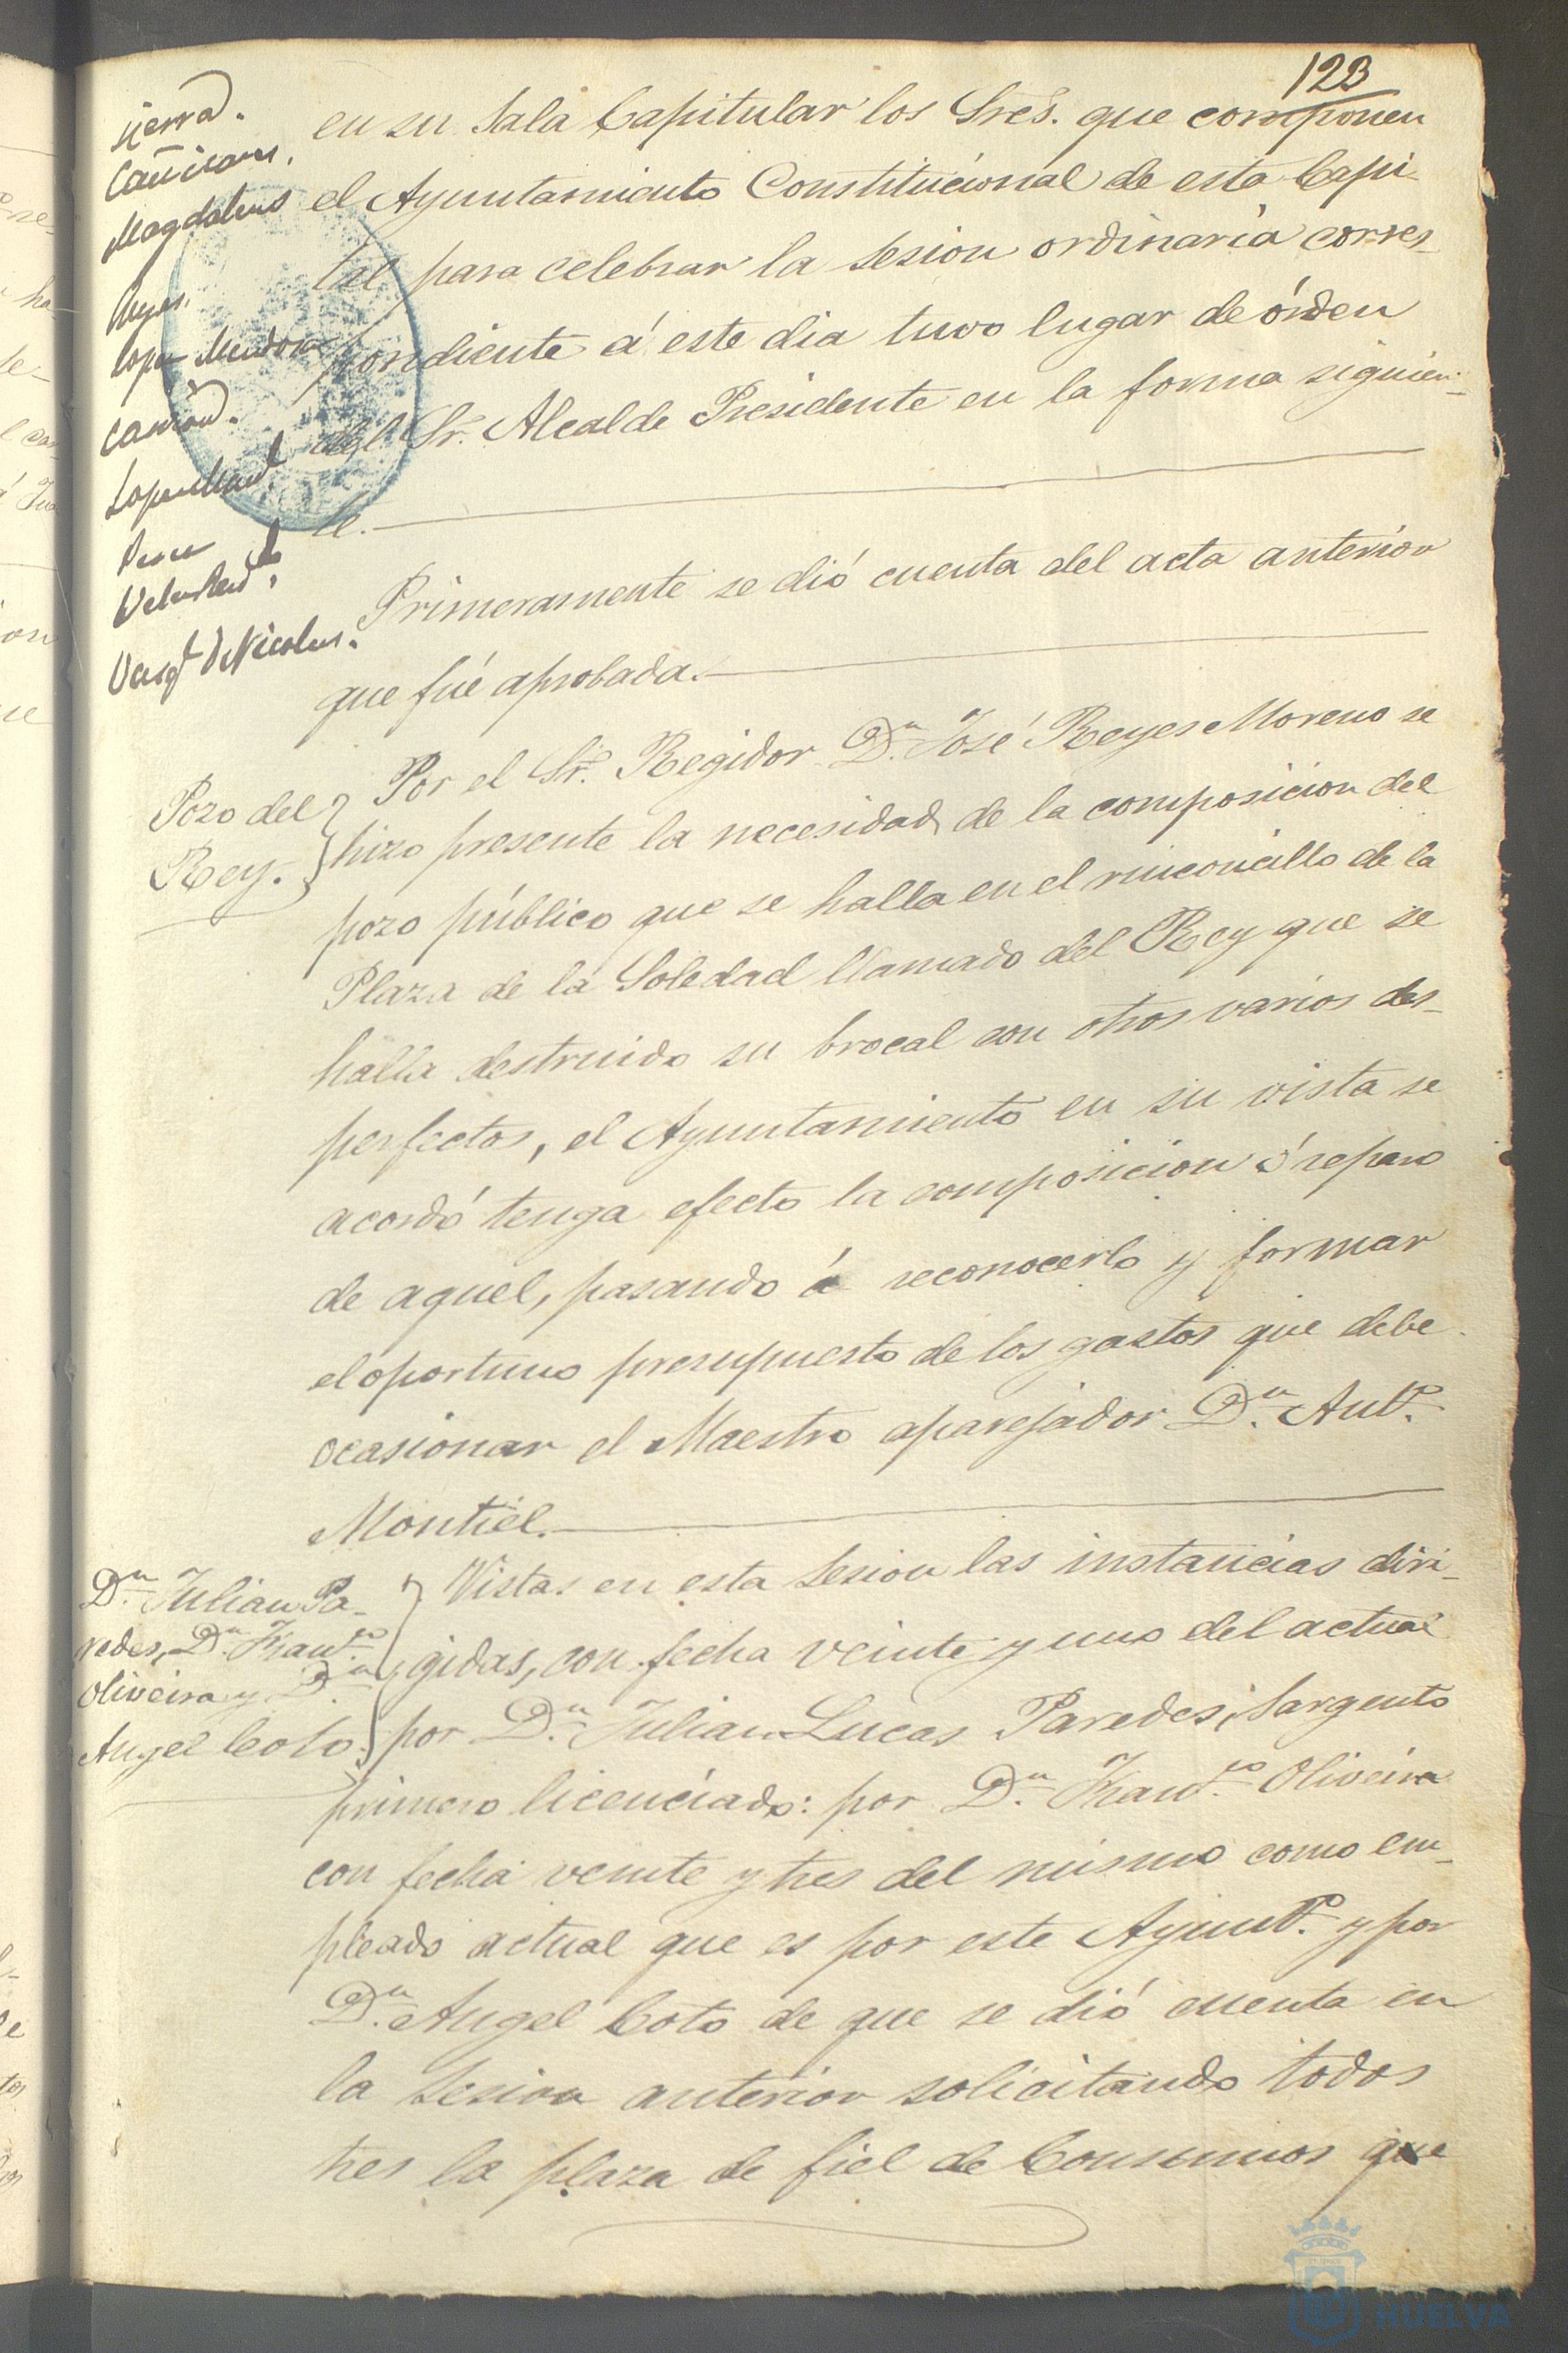 123
Sierra.
Magdaleno
Reyes.
Lopez Mendoza
Lopez
Perez
Vazqz D Nicolas.
en su Sala Capitular los Sres. que componen
el Ayuntamiento Constitucional de esta Capi-
tal para celebrar la sesion ordinaria corres-
pondiente á este dia tuvo lugar de órden
del Sr. Alcalde Presidente en la forma siguien-
te.
Primeramente se dió cuenta del acta anterior
que fué aprobada.
Pozo del
Rey.
Por el Sr. Regidor Dn. José Reyes Moreno se
hizo presente la necesidad de la composicion del
pozo público que se halla en el rinconcillo de la
Plaza de la Soledad llamado del Rey que se
halla destruido su brocal con otros varios des-
perfectos, el Ayuntamiento en su vista se
acordó tenga efecto la composicion ó reparo
de aquel, pasando á reconocerlo y formar
el oportuno presupuesto de los gastos que debe
ocasionar el Maestro aparejador Dn. Anto.
Montiel.
Dn. Julian Pa-
redes, Dn. Franco.
Oliveira y Dn.
Angel Coto.
Vistas en esta sesion las instancias diri-
gidas, con fecha veinte y uno del actual
por Dn. Julian Lucas Paredes, Sargento
primero licenciado: por Dn. Franco. Oliveira
con fecha veinte y tres del mismo como em-
pleado actual que es por este Ayunto. y por
Dn. Angel Coto de que se dió cuenta en
la sesion anterior solicitando todos
tres la plaza de fiel de Consumos que
HUELVA